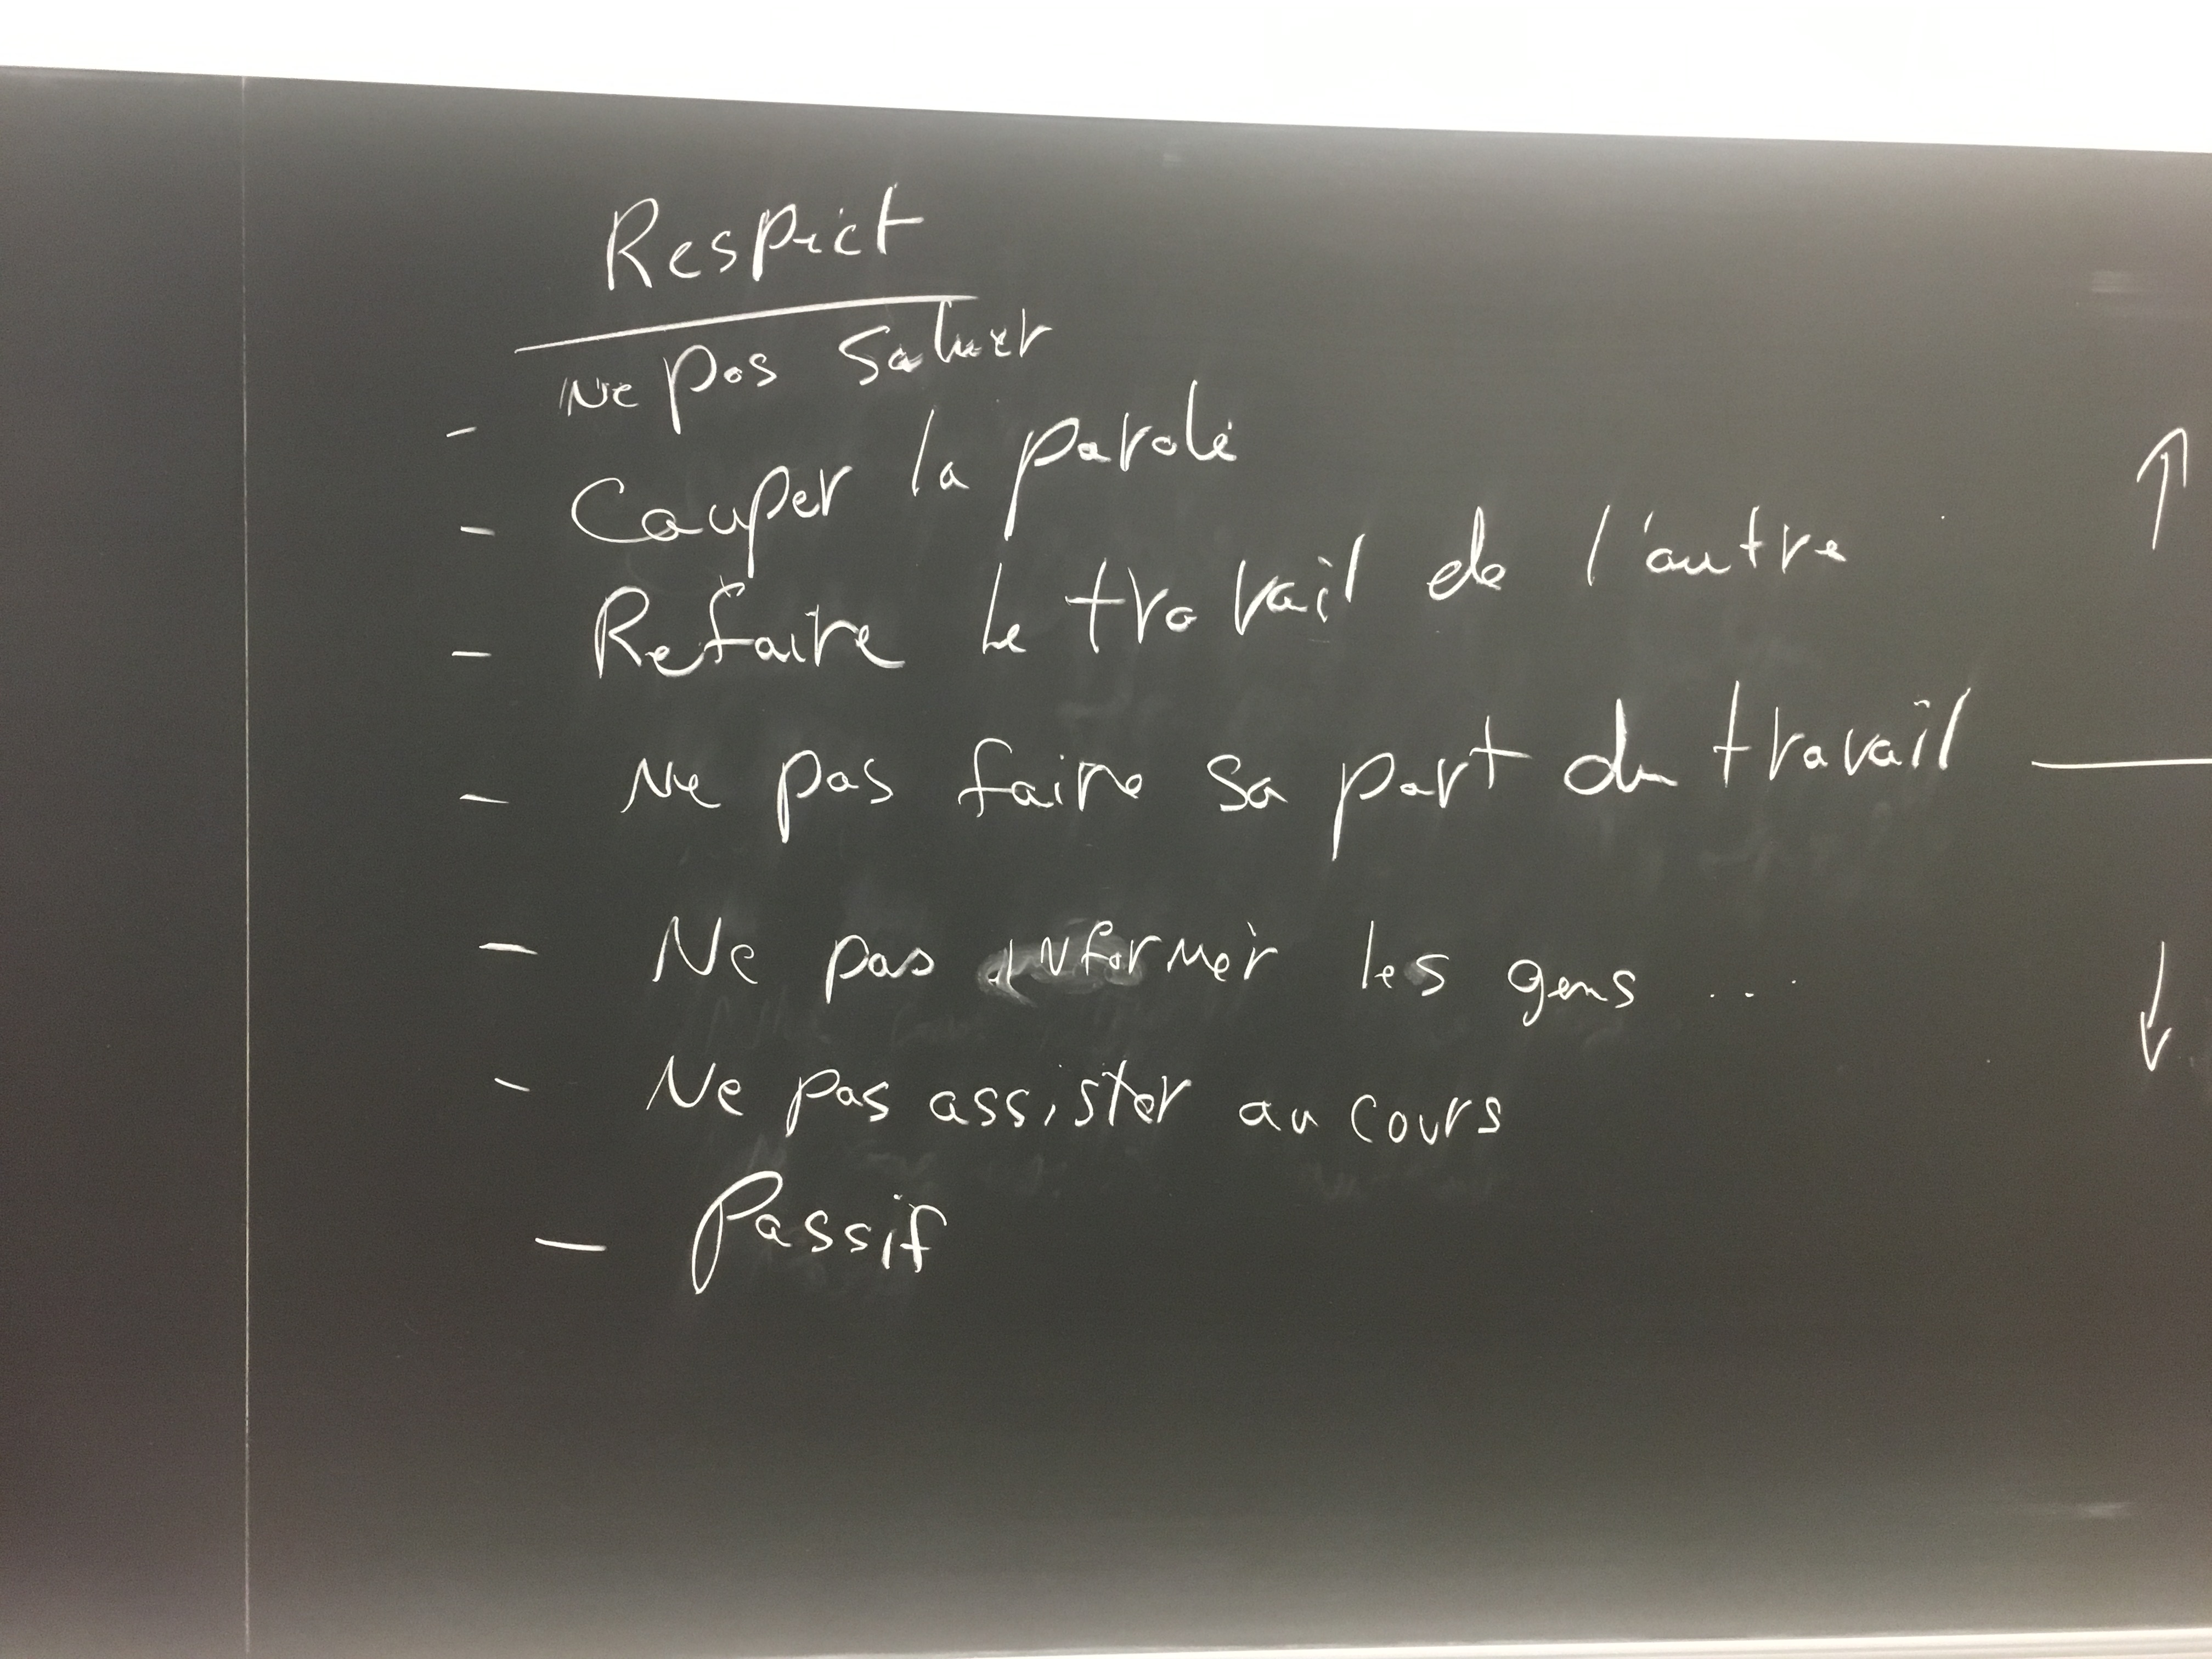 Respect
- Ne pas saluer
- Couper la parole
- Refaire le travail de l'autre
- Ne pas faire sa part du travail
- Ne pas informer les gens ...
- Ne pas assister au cours
- Passif